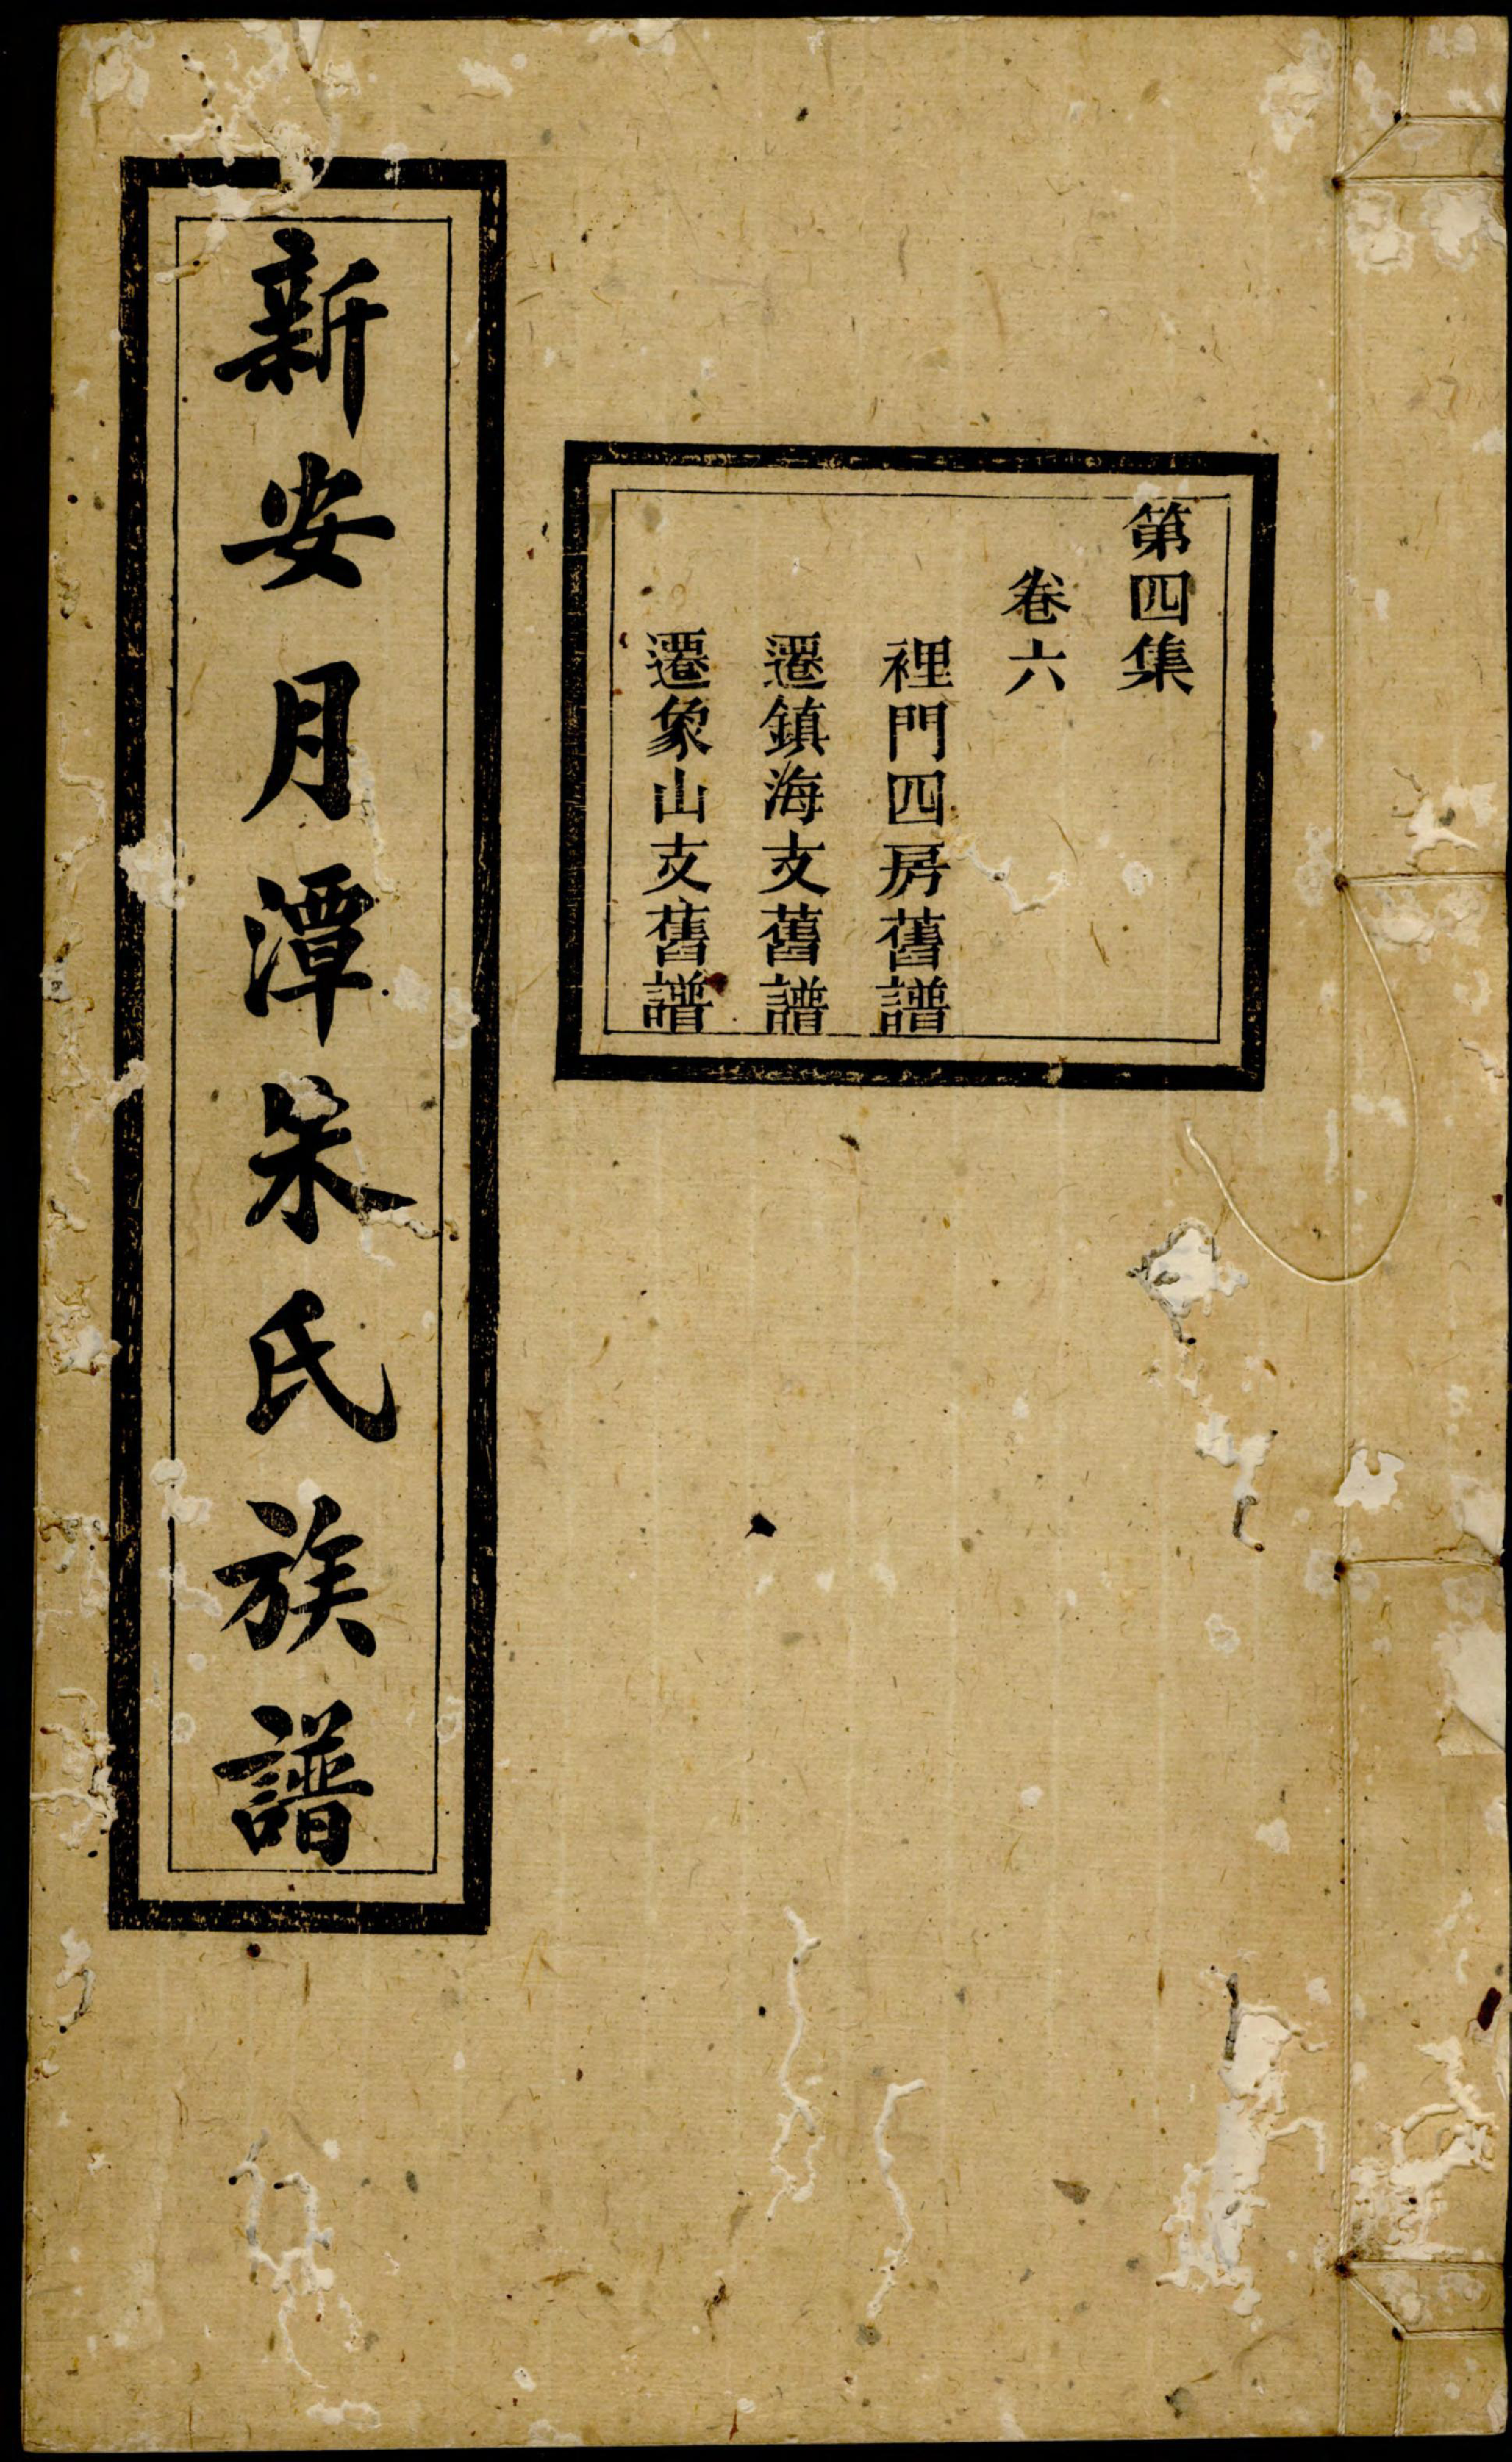 第四集
卷六
裡門四房舊譜
遷鎮海支舊譜
遷象山支舊譜
新安月潭朱氏族譜